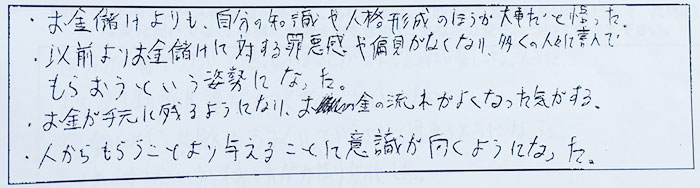 ・お金儲けよりも、自分の知識や人格形成のほうが大事だと悟った。
・以前よりお金儲けに対する罪悪感や偏見がなくなり、多くの人々に喜んで
もらおうという姿勢になった。
・お金が手元に残るようになり、お金の流れがよくなった気がする。
・人からもらうことより与えることに意識が向くようになった。